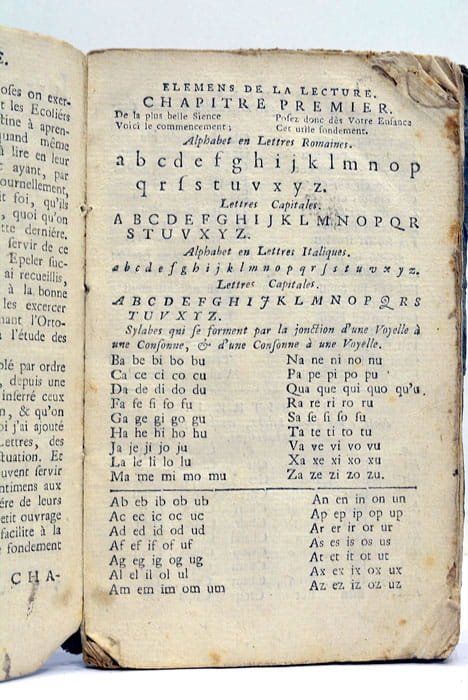 E.
oses on exer-
t les Ecoliers
tine à apren-
quand même
à lire en leur
t ayant, par
ournellement,
it foi, qu'ils
, quoi qu'on
tte dernière.
servir de ce
Epeler suc-
ai recueillis,
à la bonne
les excercer
nant l'Orto-
à l'étude des
plé par ordre
, depuis une
inferré ceux
n, & qu'on
oi j'ai ajouté
Lettres, des
tuation. Et
uvent servir
ntimens aux
ére de leurs
etit ouvrage
facilite à la
e fondement
CHA-
ELEMENS DE LA LECTURE.
CHAPITRE PREMIER.
De la plus belle Sience Posez donc dès Votre Enfance
Voici le commencement ; Cet utile fondement.
Alphabet en Lettres Romaines.
a b c d e f g h i j k l m n o p
q r ſ s t u v x y z.
Lettres Capitales.
A B C D E F G H I J K L M N O P Q R
S T U V X Y Z.
Alphabet en Lettres Italiques.
a b c d e f g h i j k l m n o p q r ſ s t u v x y z.
Lettres Capitales.
A B C D E F G H I J K L M N O P Q R S
T U V X Y Z.
Sylabes qui se forment par la jonction d'une Voyelle à
une Consonne, & d'une Consonne à une Voyelle.
Ba be bi bo bu Na ne ni no nu
Ca ce ci co cu Pa pe pi po pu
Da de di do du Qua que qui quo qu'u.
Fa fe fi fo fu Ra re ri ro ru
Ga ge gi go gu Sa ſe ſi ſo ſu
Ha he hi ho hu Ta te ti to tu
Ja je ji jo ju Va ve vi vo vu
La le li lo lu Xa xe xi xo xu
Ma me mi mo mu Za ze zi zo zu.
Ab eb ib ob ub An en in on un
Ac ec ic oc uc Ap ep ip op up
Ad ed id od ud Ar er ir or ur
Af ef if of uf As es is os us
Ag eg ig og ug At et it ot ut
Al el il ol ul Ax ex ix ox ux
Am em im om um Az ez iz oz uz